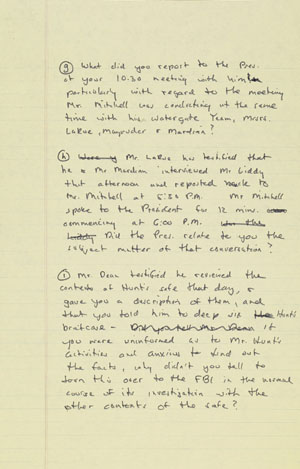 (g) What did you report to the Pres.
at your 10:30 meeting with him
particularly with regard to the meeting
Mr. Mitchell was conducting at the same
time with his Watergate Team, Messrs.
LaRue, Magruder & Mardian?
(h) Mr. LaRue has testified that
he & Mr. Mardian interviewed Mr. Liddy
that afternoon and reported to
Mr. Mitchell at 5:30 P.M. Mr Mitchell
spoke to the President for 12 mins.
commencing at 6:00 P.M.
Did the Pres. relate to you the
subject matter of that conversation?
(i) Mr. Dean testified he reviewed the
contents of Hunt's safe that day, &
gave you a description of them, and
that you told him to deep six Hunt's
briefcase - If
you were uninformed as to Mr. Hunt's
activities and anxious to find out
the facts, why didn't you tell to
turn this over to the FBI in the normal
course of its investigation with the
other contents of the safe?